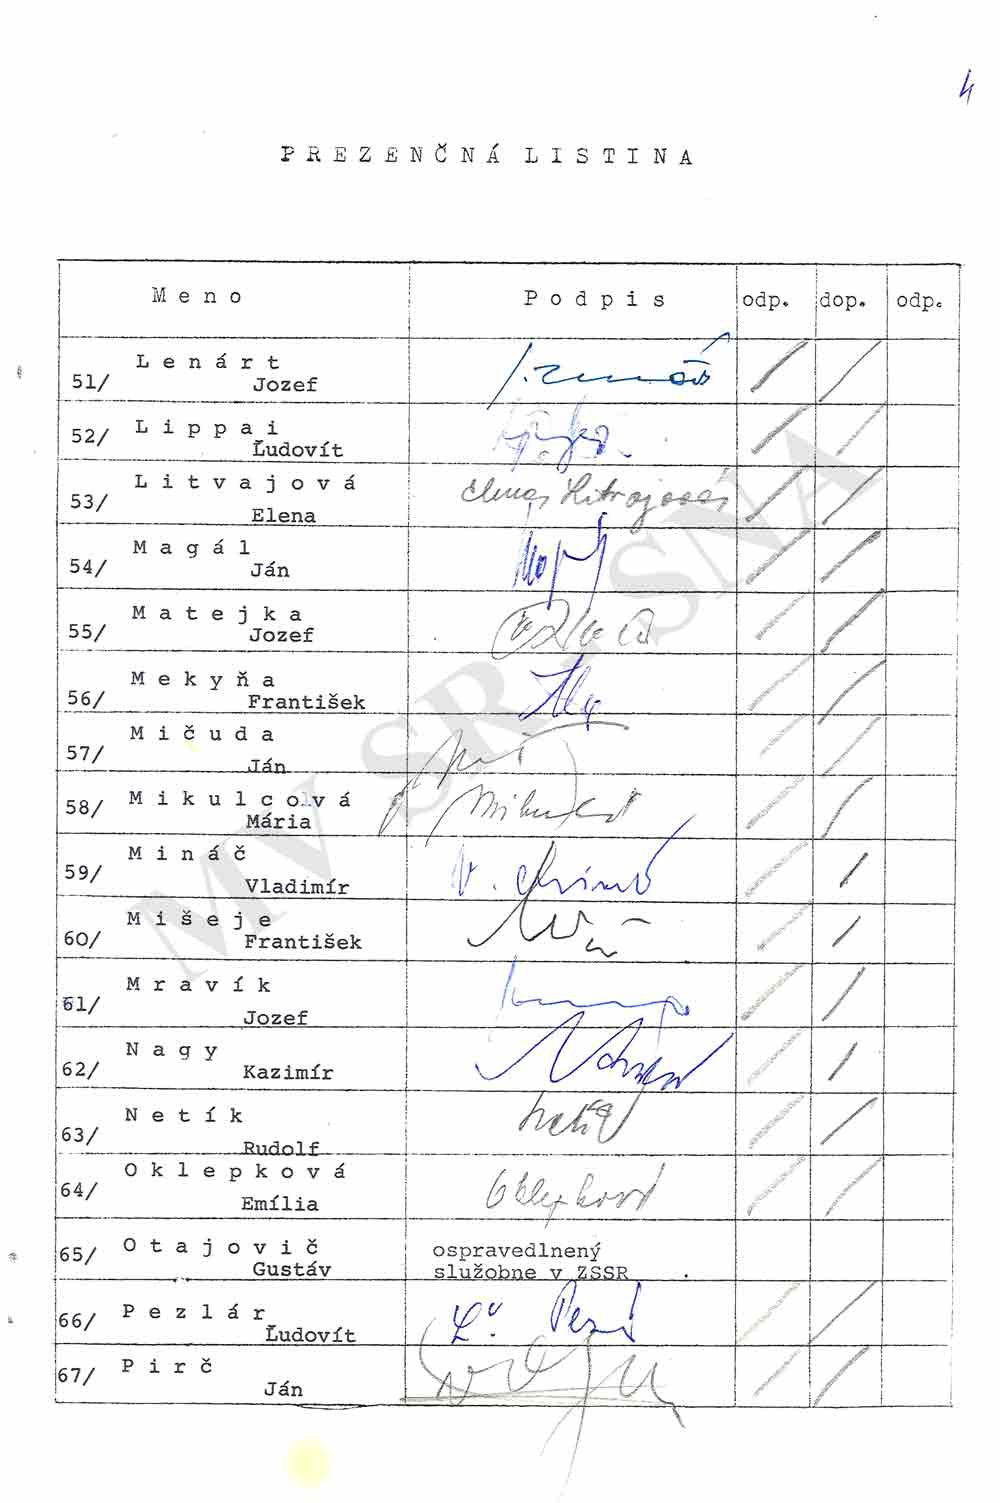 4
PREZENČNÁ LISTINA
Meno Podpis odp. dop. odp.
51/ Lenárt
Jozef
52/ Lippai
Ľudovít
53/ Litvajová Elena Litvajová
Elena
54/ Magál
Ján
55/ Matejka
Jozef
56/ Mekyňa
František
57/ Mičuda
Ján
58/ Mikulcová
Mária
59/ Mináč
Vladimír
60/ Mišeje
František
61/ Mravík
Jozef
62/ Nagy
Kazimír
63/ Netík Netík
Rudolf
64/ Oklepková Oklepková
Emília
65/ Otajovič ospravedlnený
Gustáv služobne v ZSSR
66/ Pezlár
Ľudovít
67/ Pirč
Ján
MV SR-SNA